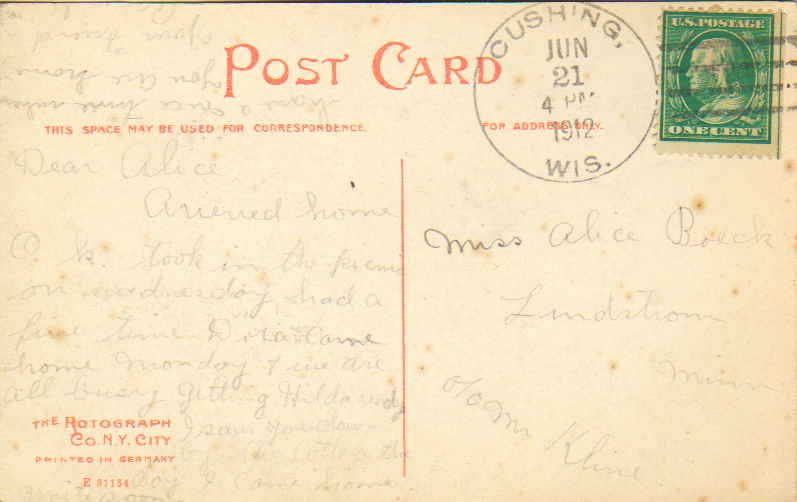 POST CARD
THIS SPACE MAY BE USED FOR CORRESPONDENCE.
FOR ADDRESS ONLY.
CUSHING,
JUN
21
4 PM
1912
WIS.
U.S. POSTAGE
ONE CENT
Dear Alice
Arieved home
O k. took in the picnic
on wednesday had a
fine time Dora came
home Monday & we are
all busy getting Hilda redy
I saw you down
by the the
day I came home.
write soon
have a nice time when
you are
Miss Alice Boeck
Lindstrom
Minn
c/o Mr Kline
THE ROTOGRAPH
CO. N.Y. CITY
PRINTED IN GERMANY
E 31154